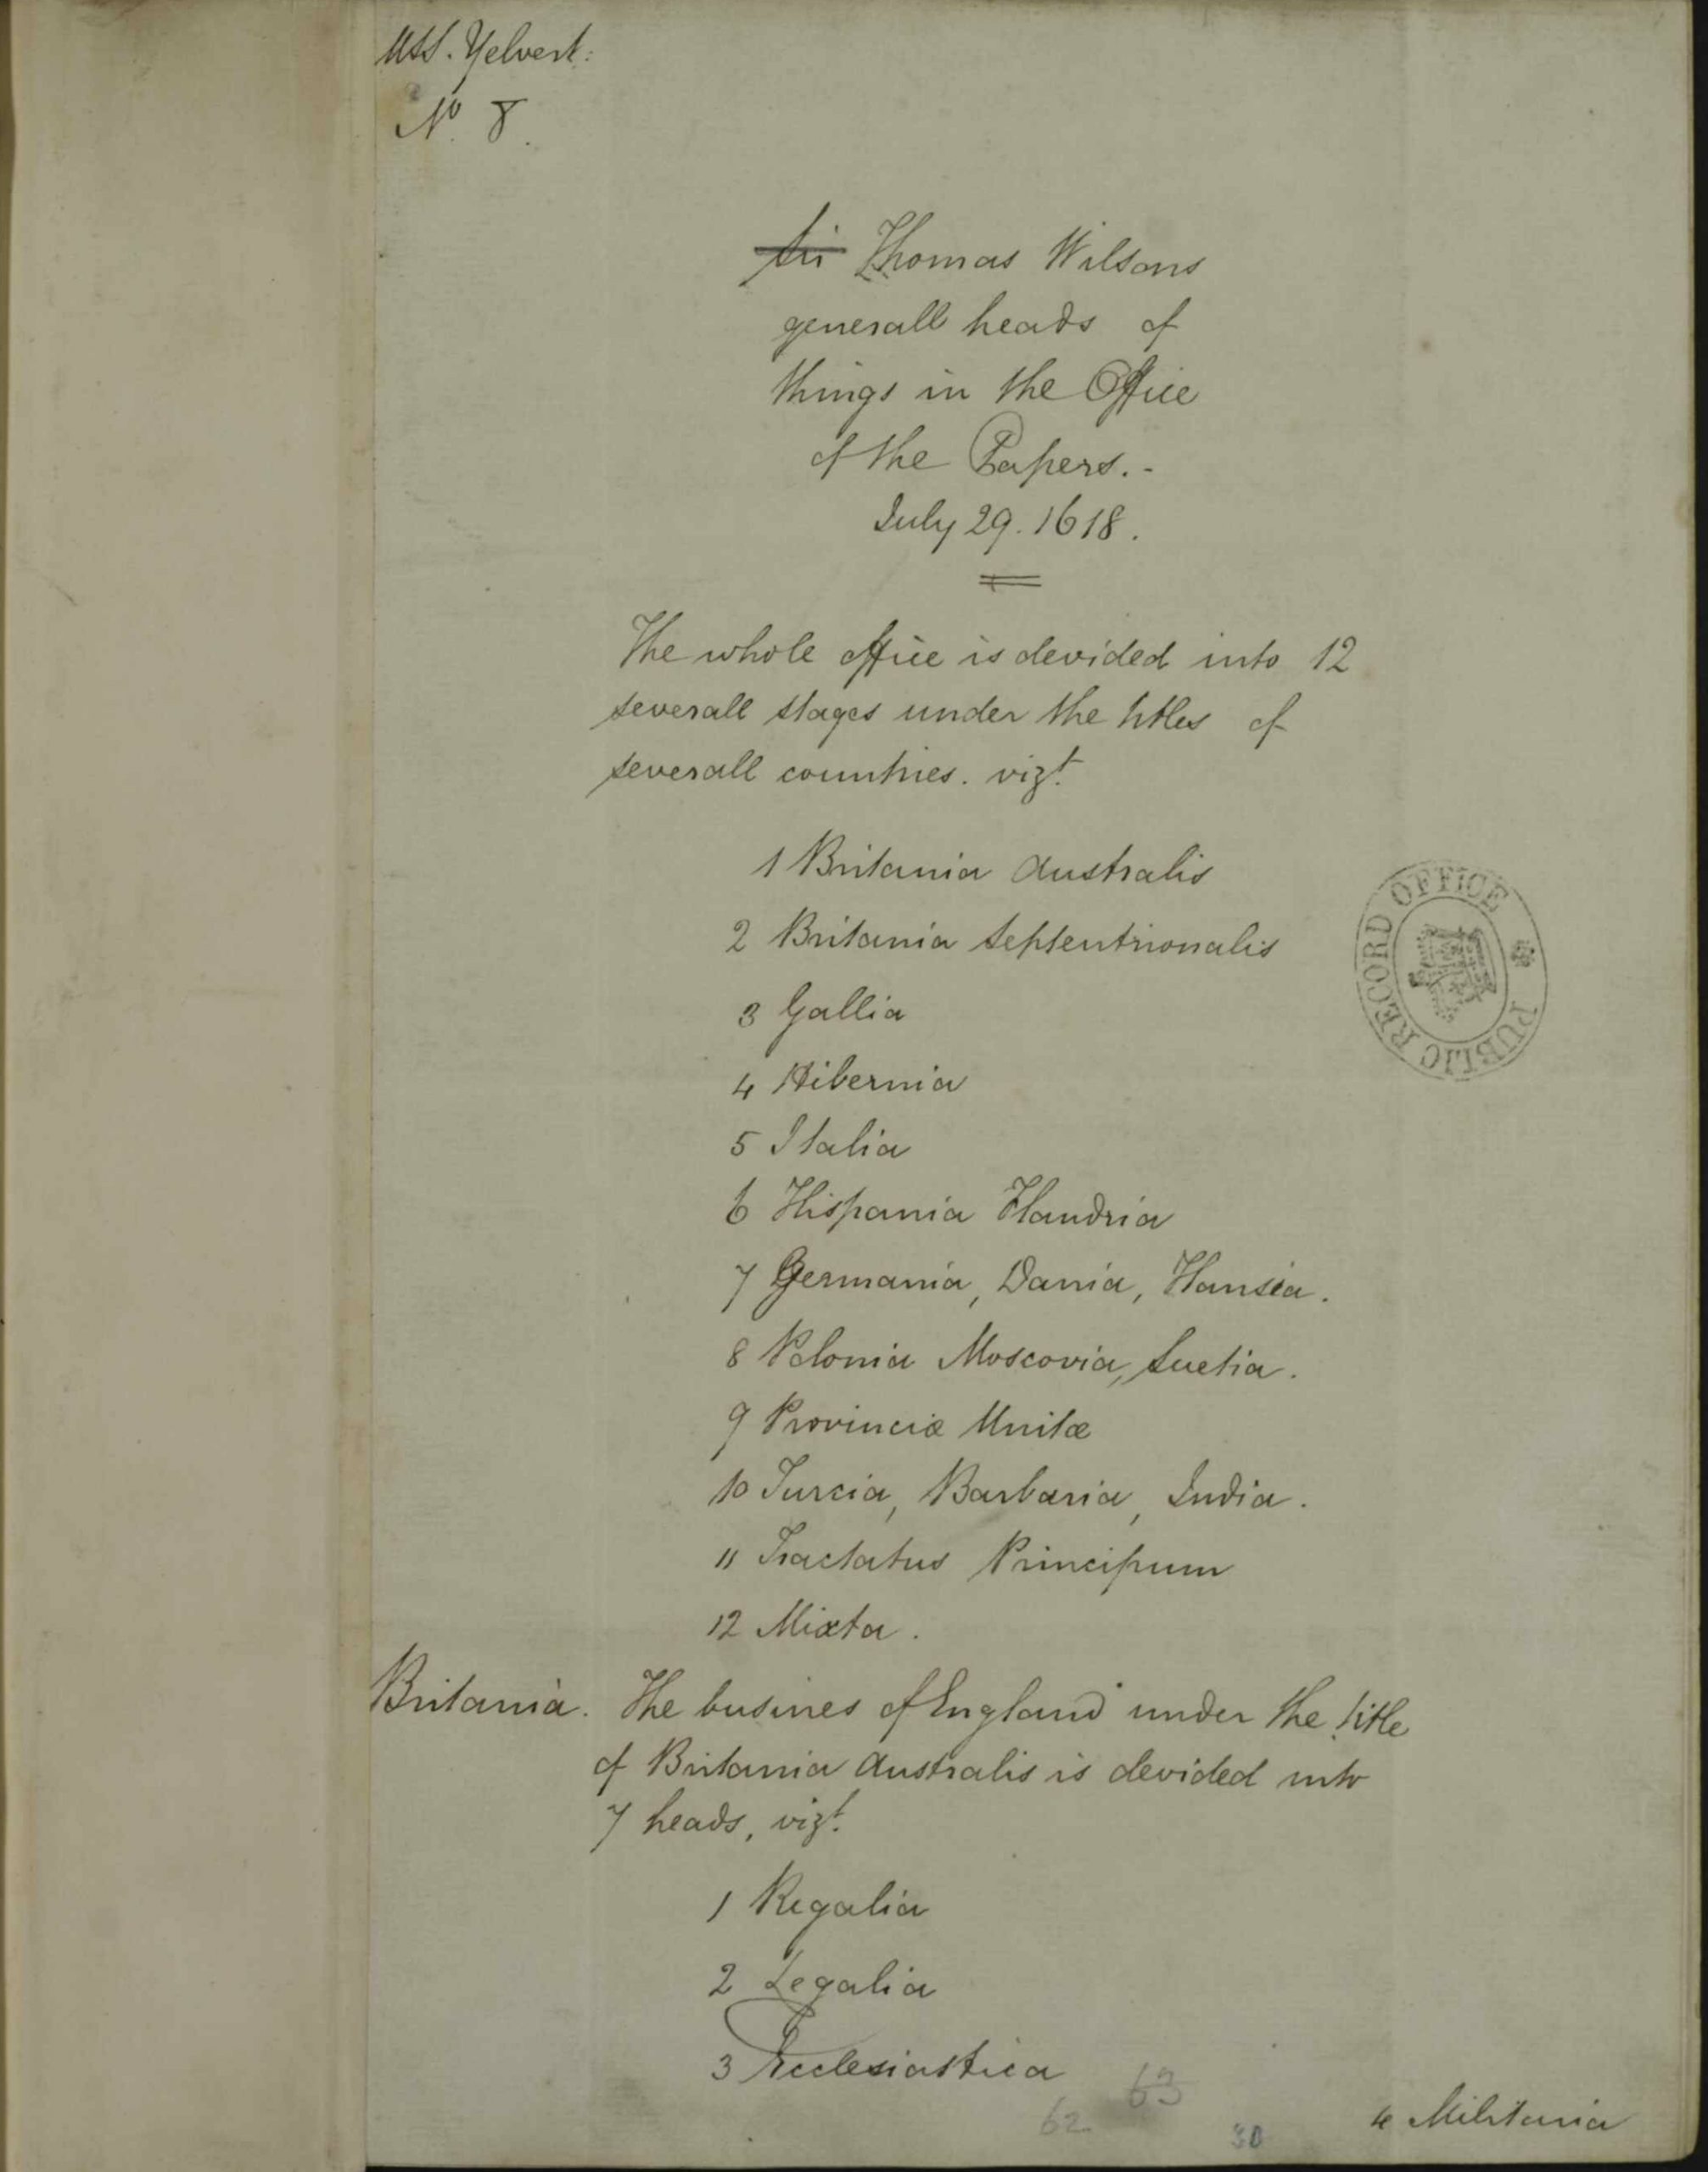 MSS. Yelvert:
No. 8.
Sir Thomas Wilsons
generall heads of
things in the Office
of the Papers.-
July 29. 1618.
The whole office is devided into 12
severall stages under the titles of
severall countries. vizt.
1 Britania Australis
2 Britania Septentrionalis
3 Gallia
4 Hibernia
5 Italia
6 Hispania Flandria
7 Germania, Dania, Hansia.
8 Polonia Moscovia, Suetia.
9 Provinciæ Unitæ
10 Turcia, Barbaria, India.
11 Tractatus Principum
12 Mixta.
Britania. The busines of England under the title
of Britania Australis is devided into
7 heads, vizt.
1 Regalia
2 Legalia
3 Ecclesiastica
63
62
30
4 Militaria
PUBLIC RECORD OFFICE